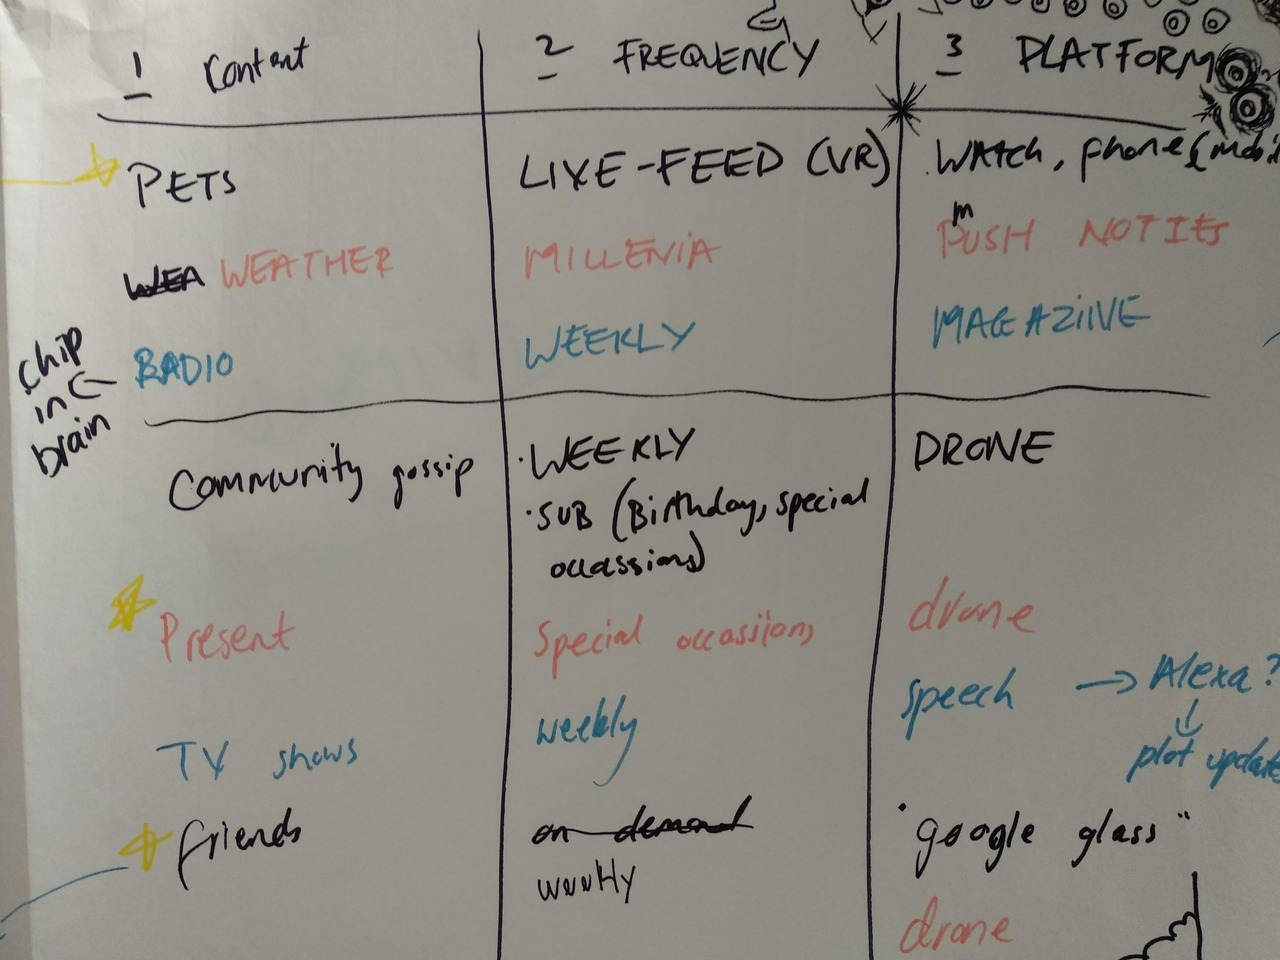 1 Content
2 FREQUENCY
3 PLATFORM
PETS
LIVE-FEED (VR)
WATCH, phone (mobi
WEA WEATHER
MILLENIA
m
PUSH NOTIES
RADIO
WEEKLY
MAGAZIIVE
chip
in
brain
Community gossip
· WEEKLY
· SUB (Birthday, special
occassions)
DRONE
Present
Special occassions
drone
TV shows
weekly
speech → Alexa?
plot update
friends
on demand
weekly
"google glass"
drone